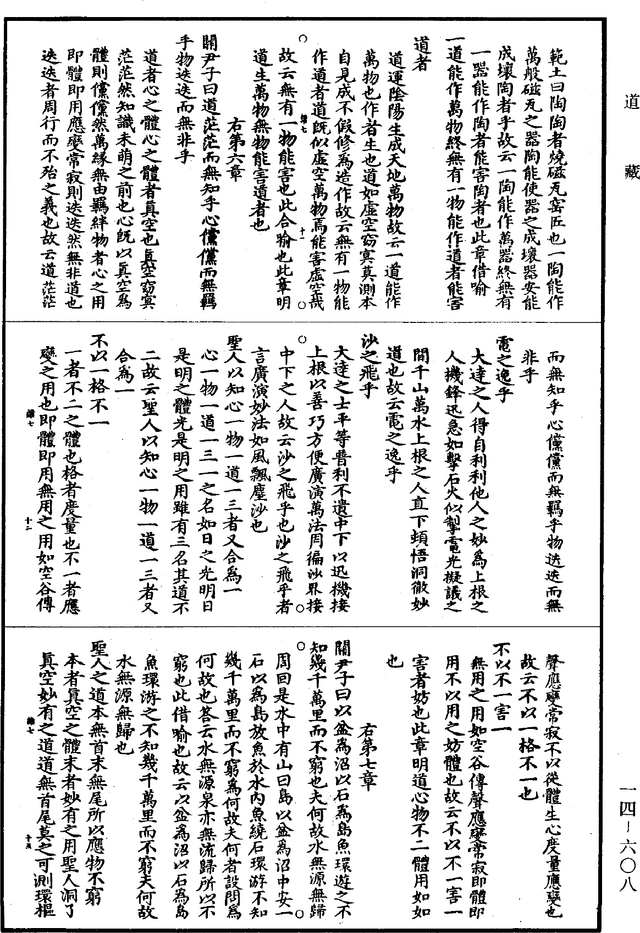 道藏
範土曰陶陶者燒磁瓦窑匠也一陶能作
萬般磁瓦之器陶能使器之成壞器安能
成壞陶者乎故云一陶能作萬器終無有
一器能作陶者能害陶者也此章借喻
一道能作萬物終無有一物能作道者能害
道者
道運陰陽生成天地萬物故云一道能作
萬物也作者生也道如虛空窈冥莫測本
自見成不假修為造作故云無有一物能
作道者道既似虛空萬物焉能害虛空哉
故云無有一物能害道者也此合喻也此章明
道生萬物無物能害道者也
右第六章
關尹子曰道茫茫而無知乎心儻儻而無羈
乎物迭迭而無非乎
道者心之體心之體者真空也真空窈冥
茫茫然知識未萌之前也心既以真空為
體則儻儻然萬緣無由羈絆物者心之用
即體即用應變常寂則迭迭然無非道也
迭迭者周行而不殆之義也故云道茫茫
而無知乎心儻儻而無羈乎物迭迭而無
非乎
電之逸乎
大達之人得自利利他人之妙為上根之
人機鋒迅急如擊石火似掣電光擬議之
間千山萬水上根之人直下頓悟洞徹妙
道也故云電之逸乎
沙之飛乎
大達之士平等普利不遺中下以迅機接
上根以善巧方便廣演萬法周徧沙界接
中下之人故云沙之飛乎也沙之飛乎者
言廣演妙法如風飄塵沙也
聖人以知心一物一道一三者又合為一
心一物一道一三一之名如日之光明日
是明之體光是明之用雖有三名其道不
二故云聖人以知心一物一道一三者又
合為一
不以一格不一
一者不二之體也格者度量也不一者應
變之用也即體即用無用之用如空谷傳
聲應變常寂不以從體生心度量應變也
故云不以一格不一也
不以不一害一
無用之用如空谷傳聲應變常寂即體即
用不以用之妨體也故云不以不一害一
害者妨也此章明道心物不二體用如如
也
右第七章
關尹子曰以盆為沼以石為島魚環遊之不
知幾千萬里而不窮也夫何故水無源無歸
周回是水中有山曰島以盆為沼中安一
石以為島放魚於水內魚繞石環游不知
幾千萬里而不窮為何故夫何者設問為
何故也答云水無源泉亦無流歸所以不
窮也此借喻也故云以盆為沼以石為島
魚環游之不知幾千萬里而不窮夫何故
水無源無歸也
聖人之道本無首末無尾所以應物不窮
本者真空之體末者妙有之用聖人洞了
真空妙有之道道無首尾莫之可測環樞
一四-六〇八